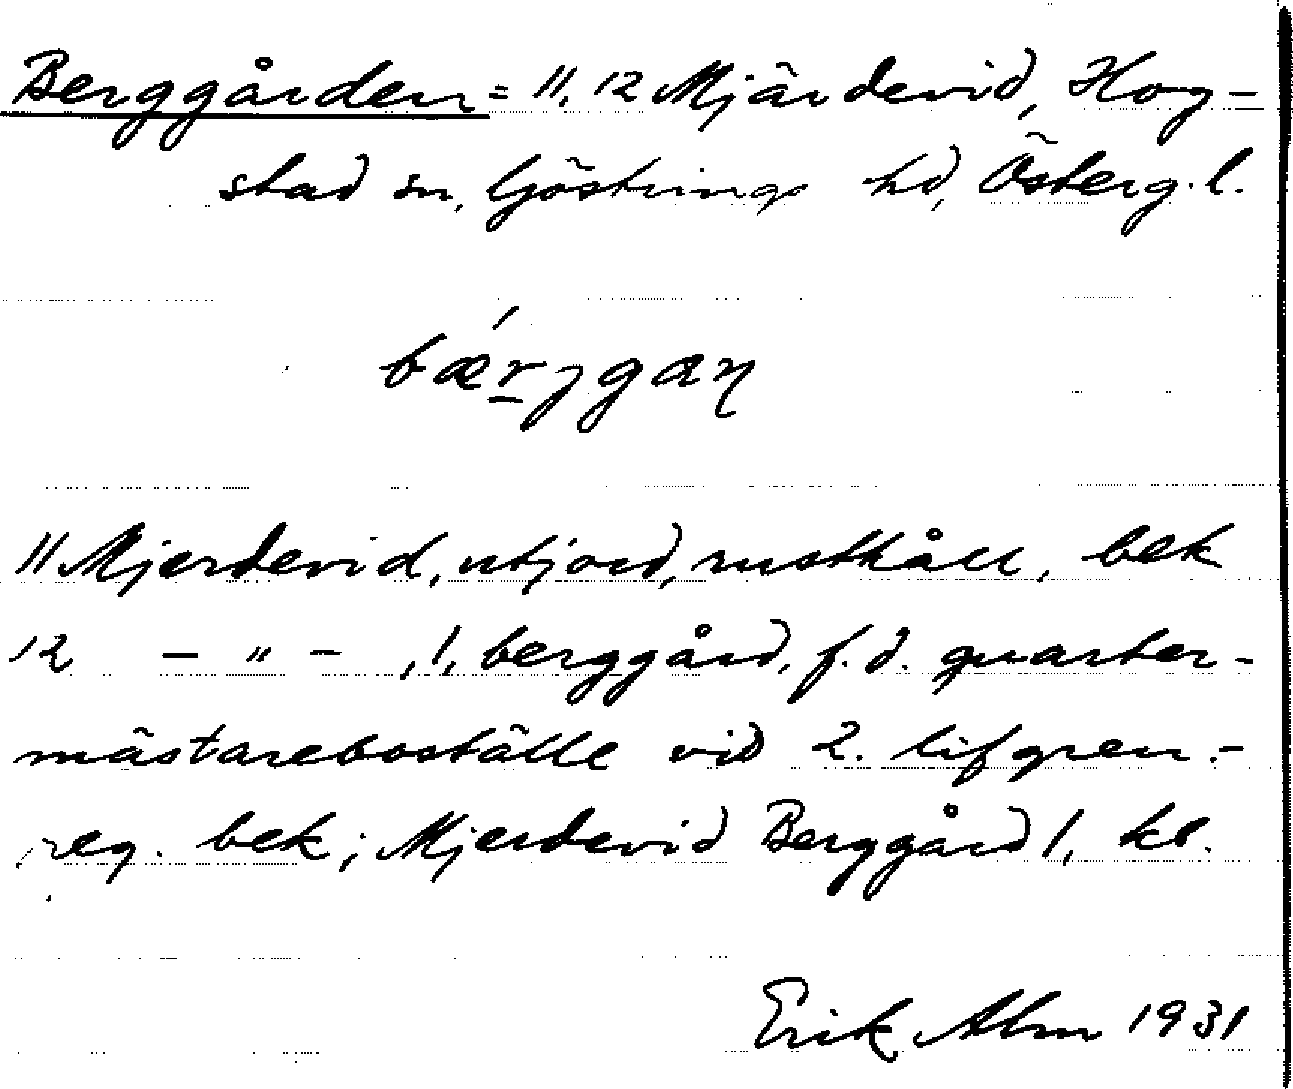 Berggården = 11, 12 Mjärdevid, Hog-
stad sn, Göstrings hd, Österg. l.
bæ´rjgaɳ
11 Mjerdevid, utjord, rusthåll, bek
12 - " - , 1, berggård, f. d. quarter-
mästareboställe vid 2. lifgren.-
reg. bek; Mjerdevid Berggård 1, kl.
Erik Alm 1931